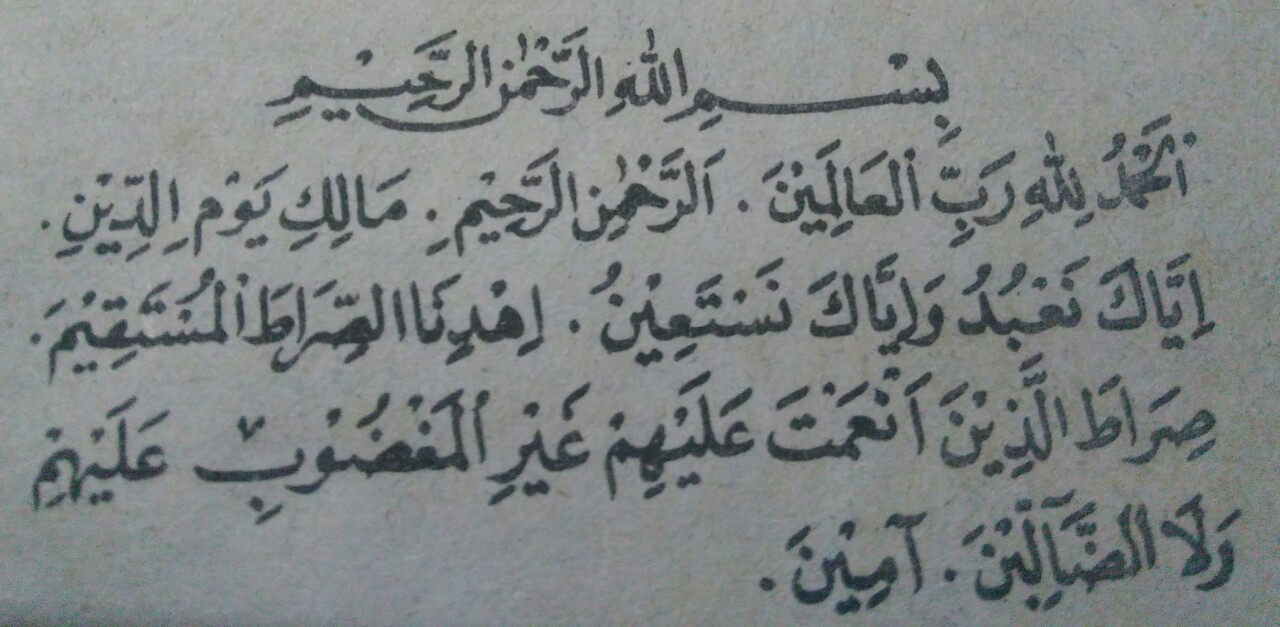 بِسْمِ اللهِ الرَّحْمٰنِ الرَّحِيْمِ
اَلْحَمْدُ لِلّٰهِ رَبِّ الْعَالَمِيْنَ . اَلرَّحْمٰنِ الرَّحِيْمِ . مَالِكِ يَوْمِ الدِّيْنِ .
اِيَّاكَ نَعْبُدُ وَاِيَّاكَ نَسْتَعِيْنُ . اِهْدِنَا الصِّرَاطَ الْمُسْتَقِيْمَ .
صِرَاطَ الَّذِيْنَ اَنْعَمْتَ عَلَيْهِمْ غَيْرِ الْمَغْضُوْبِ عَلَيْهِمْ
وَلَا الضَّآلِّيْنَ . آمِيْنَ .